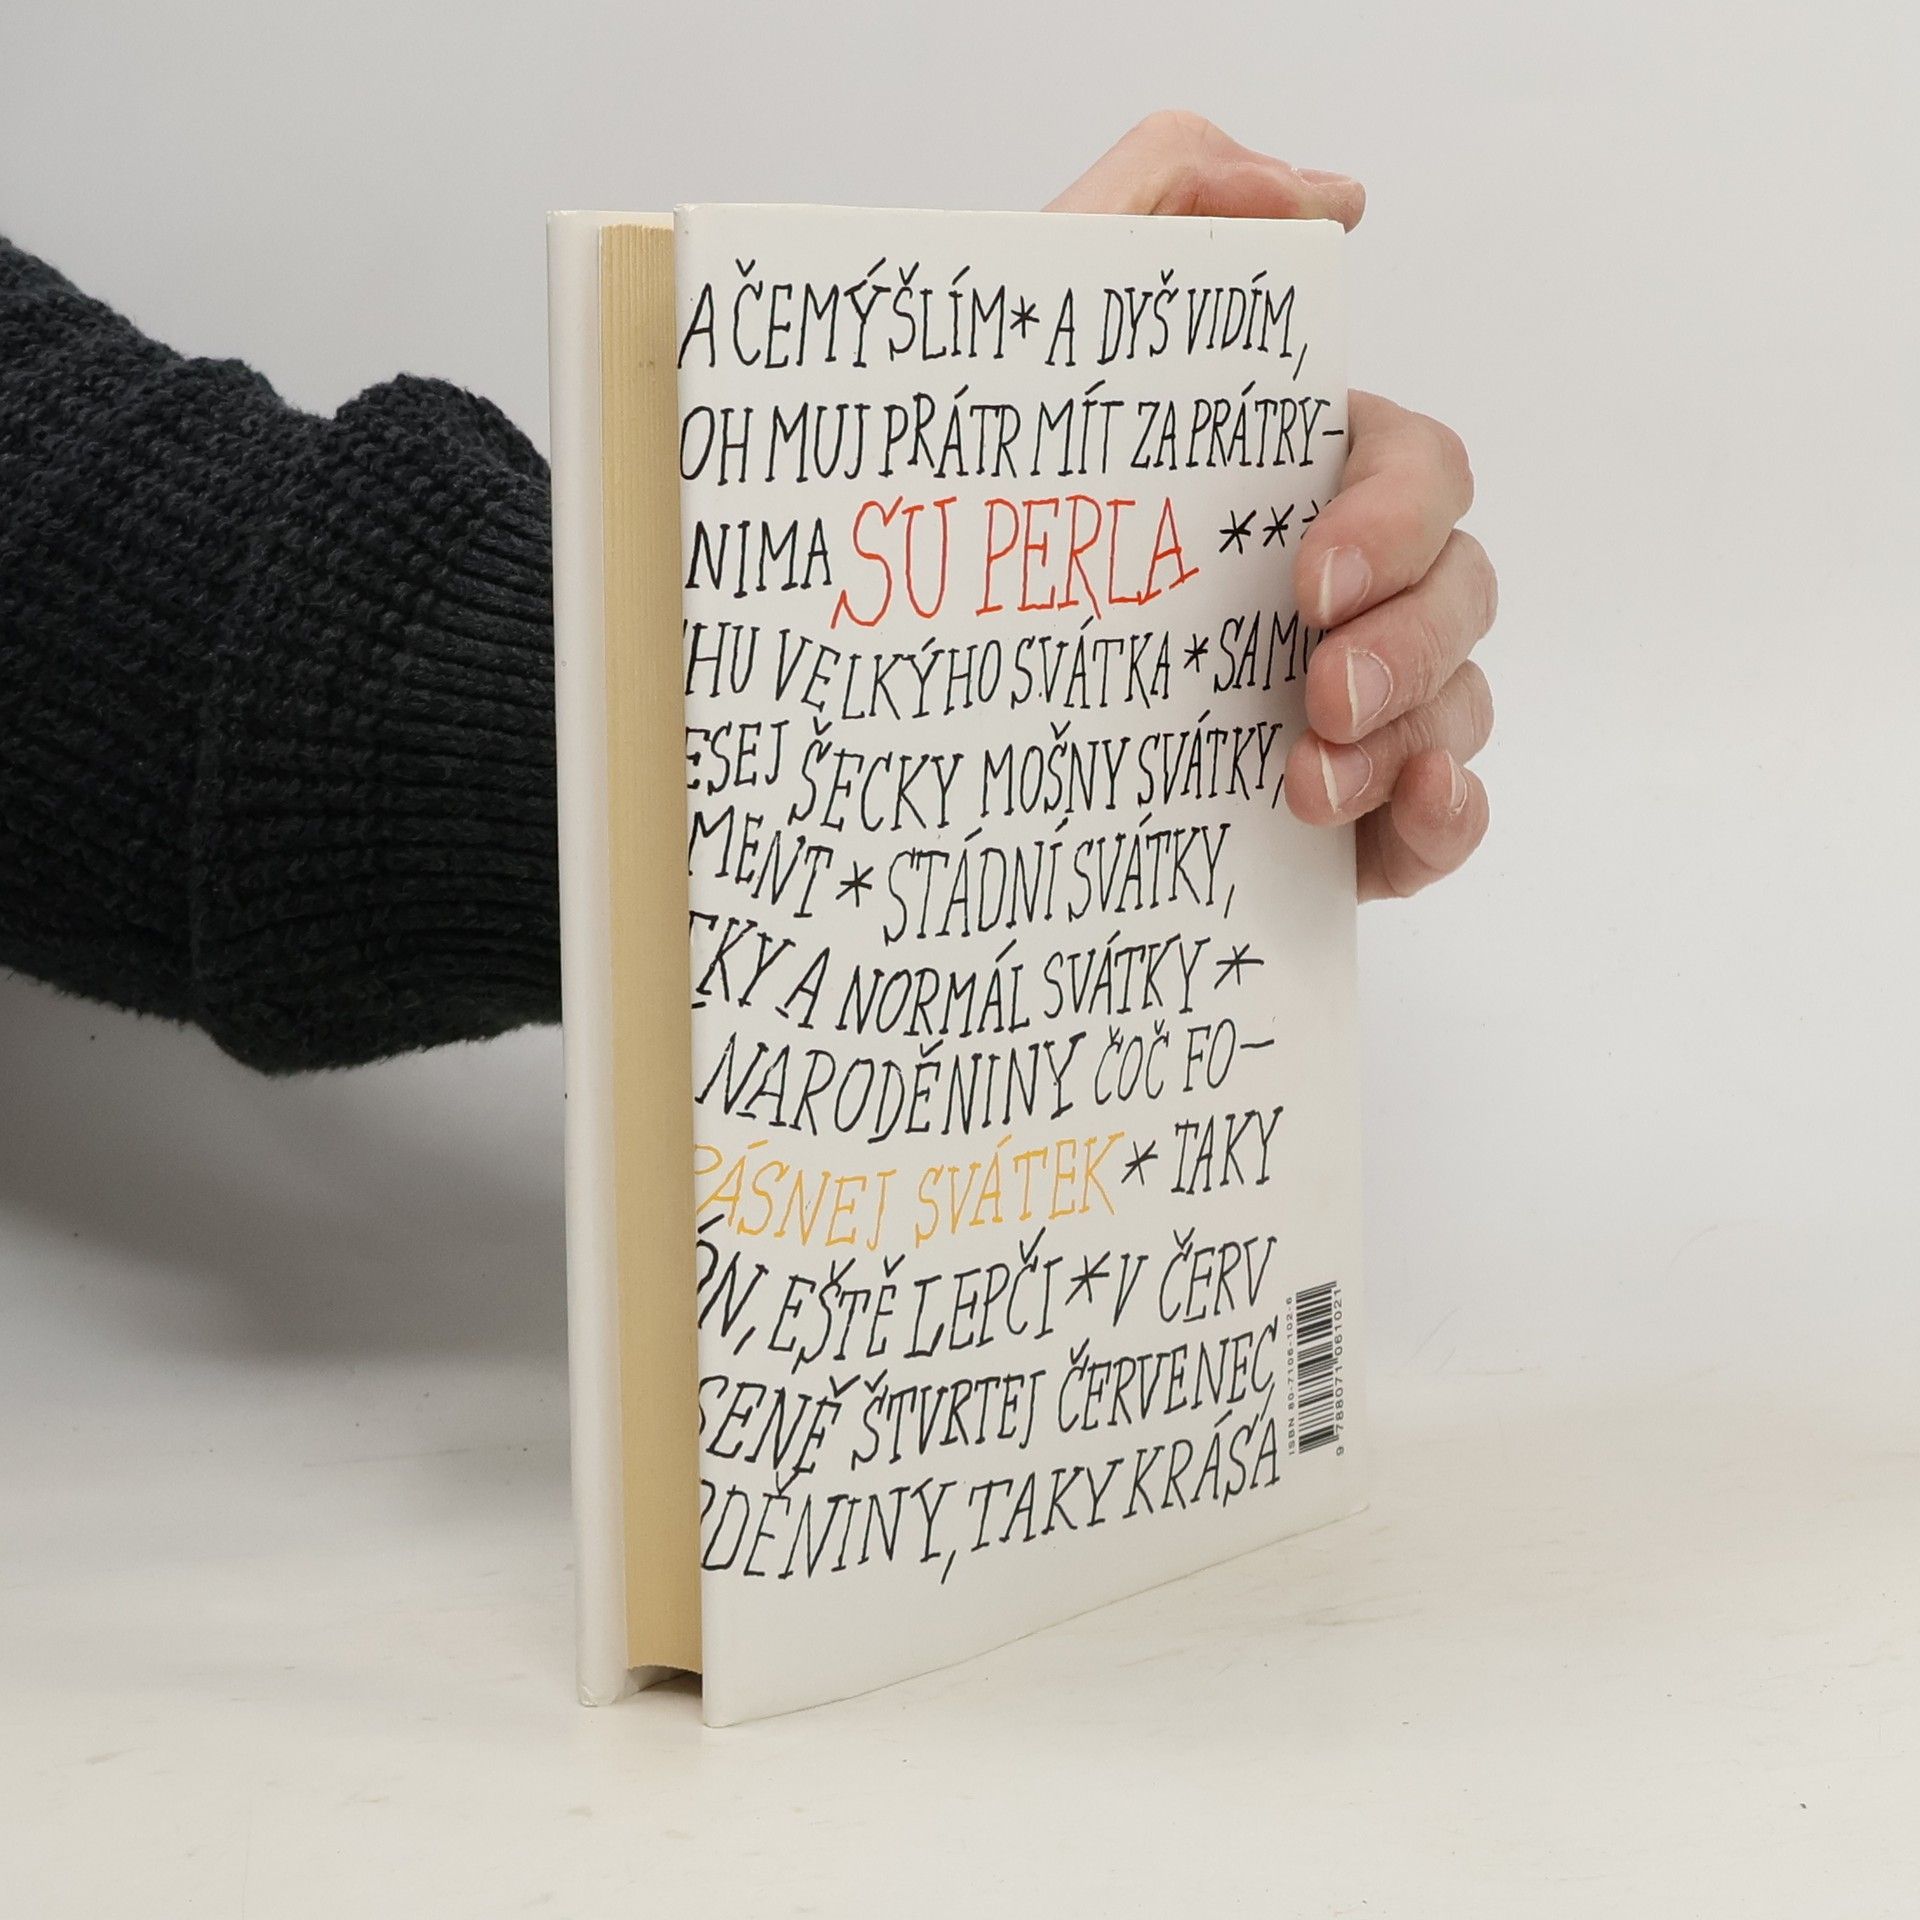 A ČEMÝŠLÍM * A DYŠ VIDÍM,
OH MUJ PRÁTR MÍT ZA PRÁTRY–
NIMA SU PERLA ***
HU VELKÝHO SVÁTKA * SAMO
ESEJ ŠECKY MOŠNY SVÁTKY,
MENT * STÁDNÍ SVÁTKY,
TKY A NORMÁL SVÁTKY *
NARODĚNINY ČOČ FO–
RÁSNEJ SVÁTEK * TAKY
ÓN, EŠTĚ LEPČI * V ČERV
SENĚ ŠTVRTEJ ČERVENEC,
ODĚNINY, TAKY KRÁSA
ISBN 80-7106-102-6
9 788071 061021